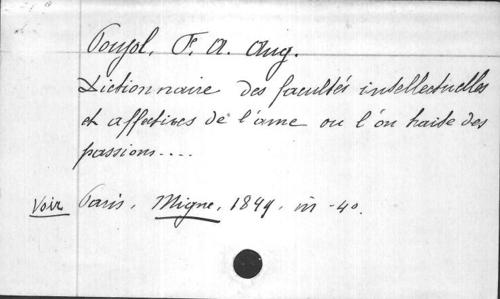 Poujol, F. A. Aug.
Dictionnaire des facultés intellectuelles
et affectives de l'âme ou l'on traite des
passions....
Voir Paris, Migne, 1849. in-4o.